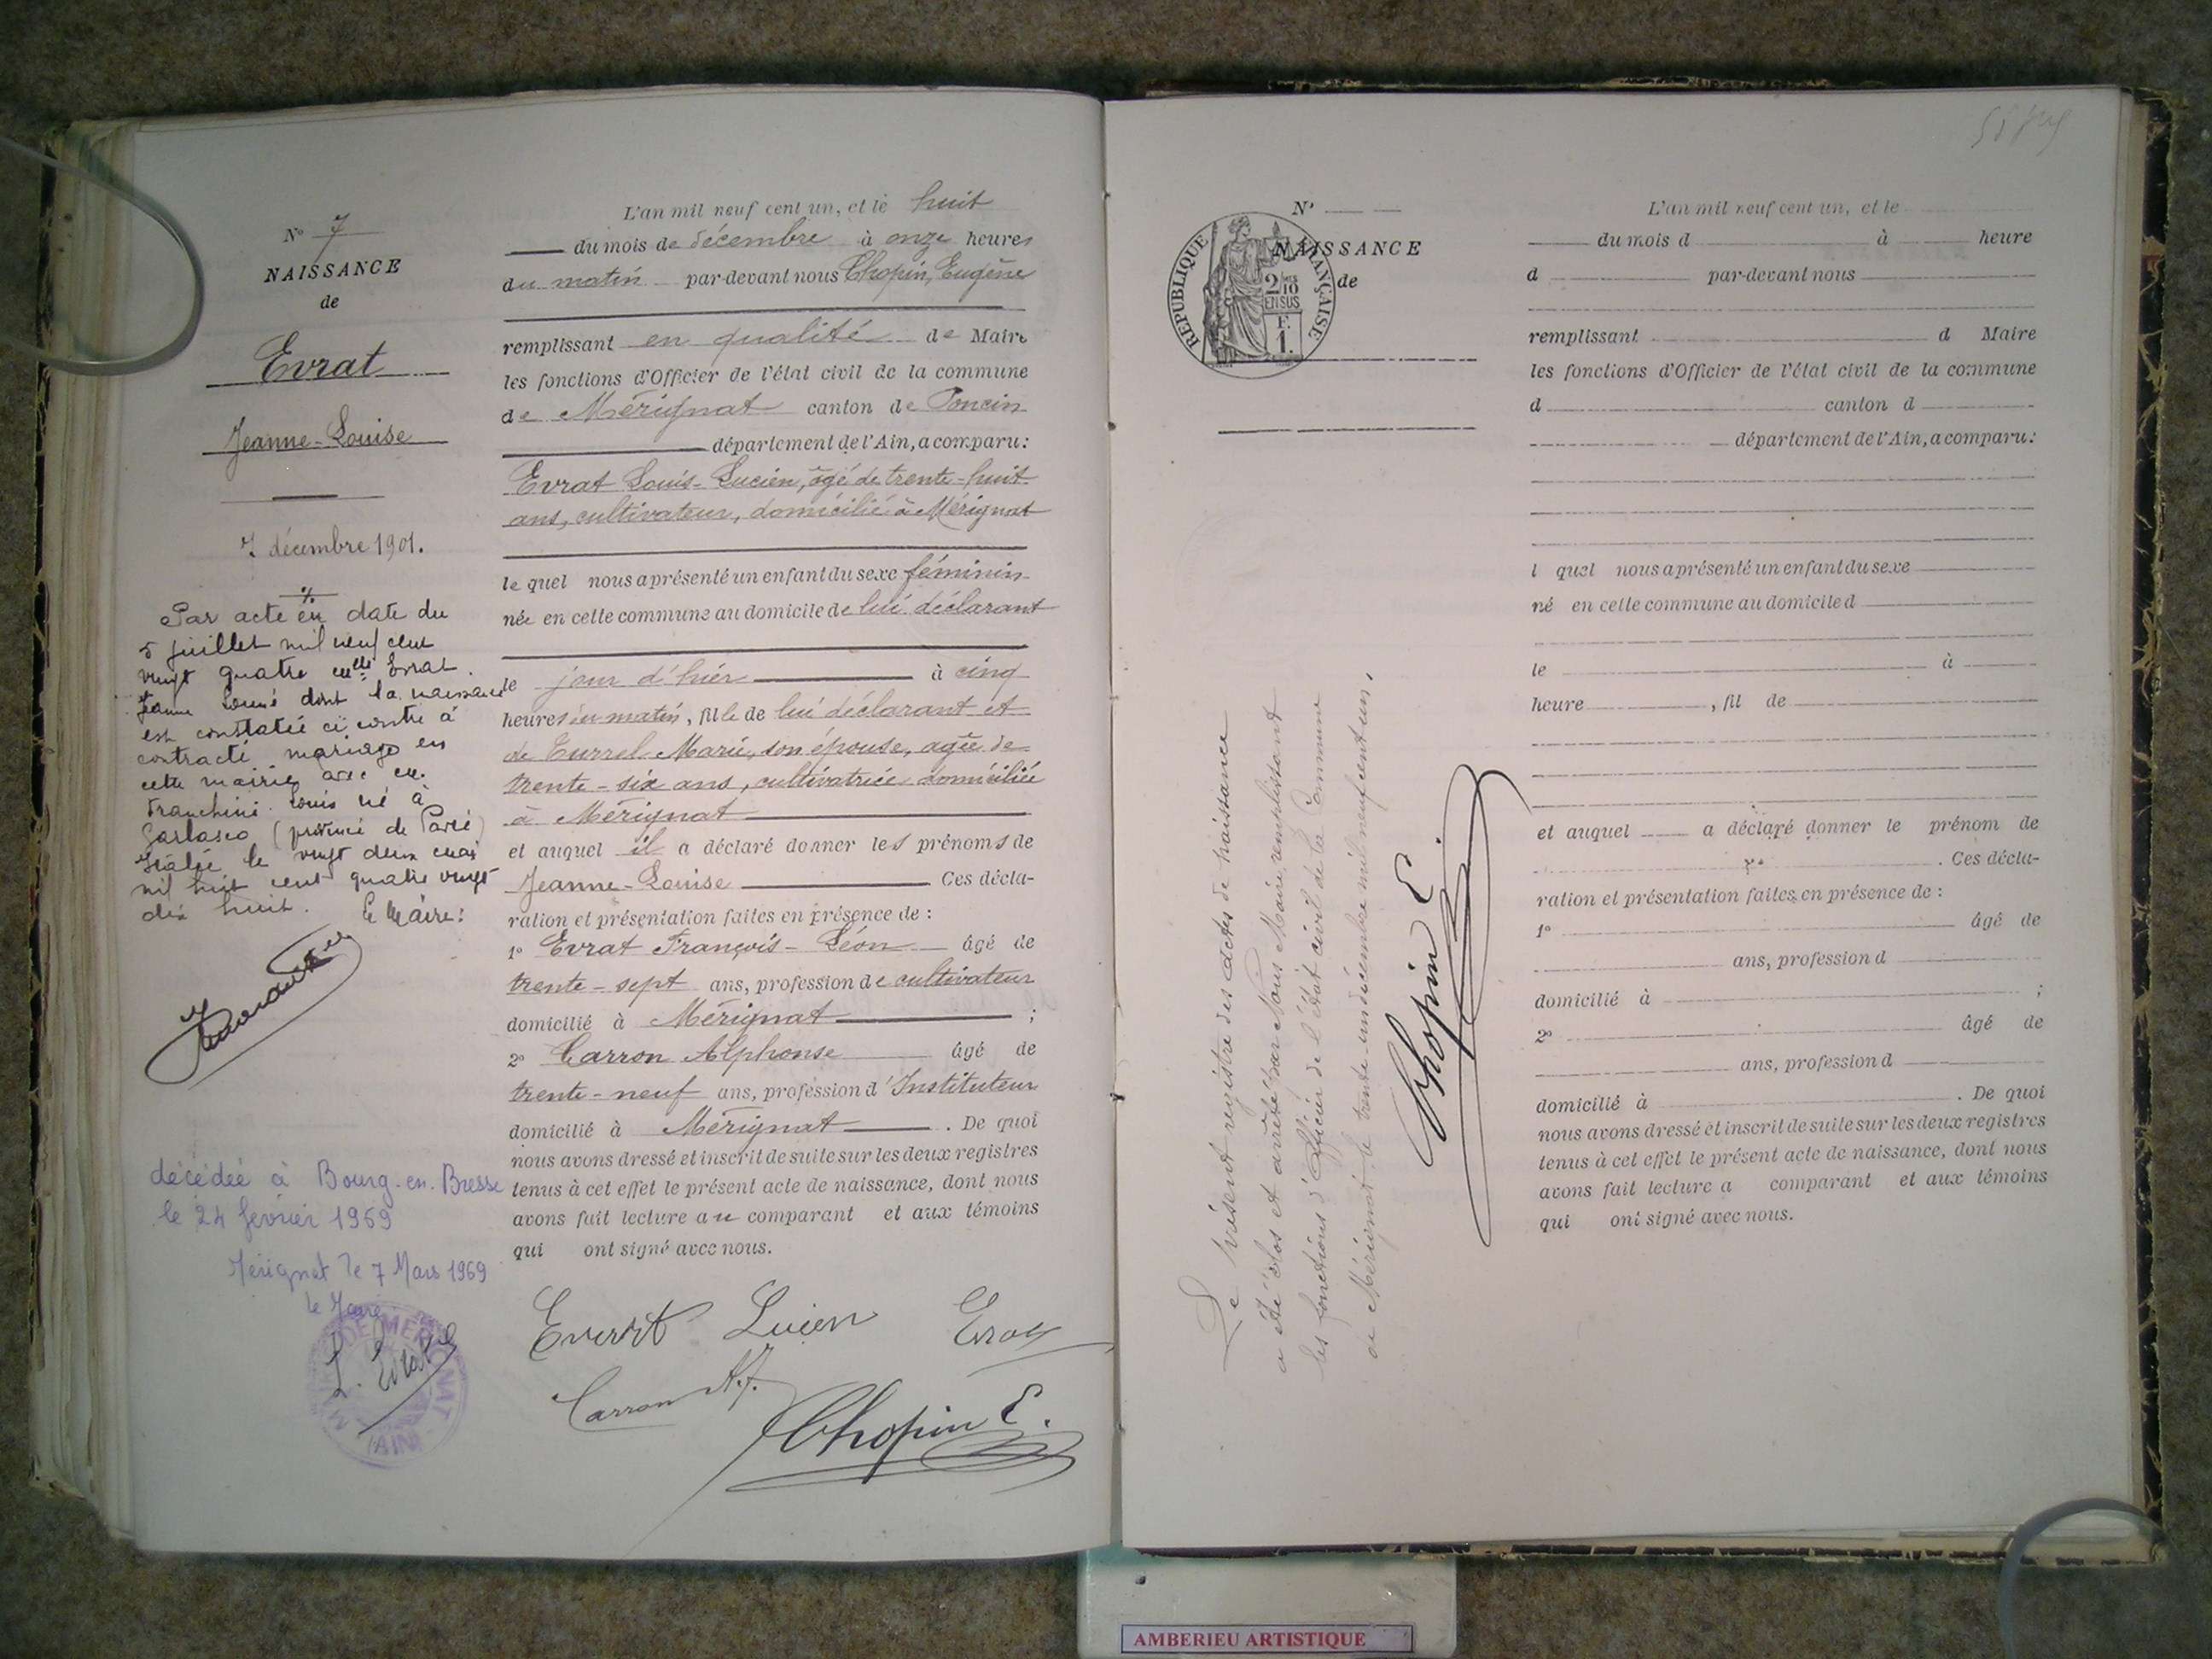 N° 7
NAISSANCE
de
Evrat
Jeanne-Louise
7 décembre 1901.
Par acte en date du
5 juillet mil neuf cent
vingt quatre elle Evrat
Jeanne Louise dont la naissance
est constatée ci contre à
contracté mariage en
cette mairie avec
Franchini Louis né à
Garlasco (province de Pavie)
Italie le vingt deux mai
mil huit cent quatre vingt
dix huit. Le Maire:
décédée à Bourg-en-Bresse
le 24 février 1969
Mérignat le 7 Mars 1969
le Maire
L. Evrat
MAIRIE DE MERIGNAT
(AIN)
L'an mil neuf cent un, et le huit
du mois de décembre à onze heures
du matin par-devant nous Chopin, Eugène
remplissant en qualité de Maire
les fonctions d'Officier de l'état civil de la commune
de Mérignat canton de Poncin
département de l'Ain, a comparu:
Evrat Louis-Lucien, âgé de trente-huit
ans, cultivateur, domicilié à Mérignat
le quel nous a présenté un enfant du sexe féminin
née en cette commune au domicile de lui déclarant
le jour d'hier à cinq
heures du matin, fille de lui déclarant et
de Eurrel Marie, son épouse, agée de
trente-six ans, cultivatrice domiciliée
à Mérignat
et auquel il a déclaré donner les prénoms de
Jeanne-Louise Ces décla-
ration et présentation faites en présence de :
1° Evrat François-Léon âgé de
trente-sept ans, profession de cultivateur
domicilié à Mérignat ;
2° Carron Alphonse âgé de
trente-neuf ans, profession d'Instituteur
domicilié à Mérignat . De quoi
nous avons dressé et inscrit de suite sur les deux registres
tenus à cet effet le présent acte de naissance, dont nous
avons fait lecture au comparant et aux témoins
qui ont signé avec nous.
Evrat Lucien Evrat
Carron A.
Chopin E.
N°
NAISSANCE
de
REPUBLIQUE FRANÇAISE
2/10
EN SUS
F.
1.
Le présent registre des actes de naissance
a été clos et arrêté par Nous Maire, remplissant
les fonctions d'Officier de l'état civil de la Commune
de Mérignat le trente-un décembre mil neuf cent un.
Chopin E.
L'an mil neuf cent un, et le
du mois d à heure
d par-devant nous
remplissant d Maire
les fonctions d'Officier de l'état civil de la commune
d canton d
département de l'Ain, a comparu:
l quel nous a présenté un enfant du sexe
né en cette commune au domicile d
le à
heure , fil de
et auquel a déclaré donner le prénom de
. Ces décla-
ration et présentation faites en présence de :
1° âgé de
ans, profession d
domicilié à ;
2° âgé de
ans, profession d
domicilié à . De quoi
nous avons dressé et inscrit de suite sur les deux registres
tenus à cet effet le présent acte de naissance, dont nous
avons fait lecture a comparant et aux témoins
qui ont signé avec nous.
AMBERIEU ARTISTIQUE